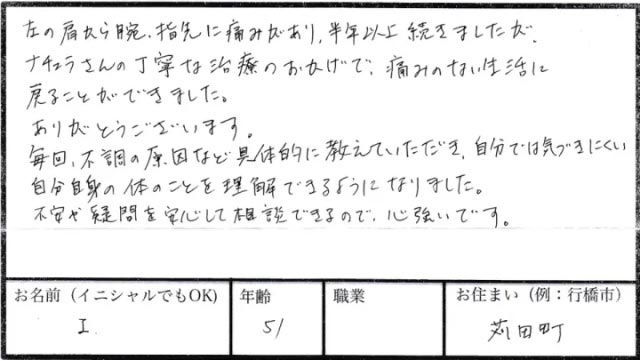 左の肩から腕、指先に痛みがあり、半年以上続きましたが、
ナチュラさんの丁寧な治療のおかげで、痛みのない生活に
戻ることができました。
ありがとうございます。
毎回、不調の原因など具体的に教えていただき、自分では気づきにくい
自分自身の体のことを理解できるようになりました。
不安や疑問を安心して相談できるので、心強いです。
お名前（イニシャルでもOK) 年齢 職業 お住まい（例：行橋市）
I. 51 苅田町